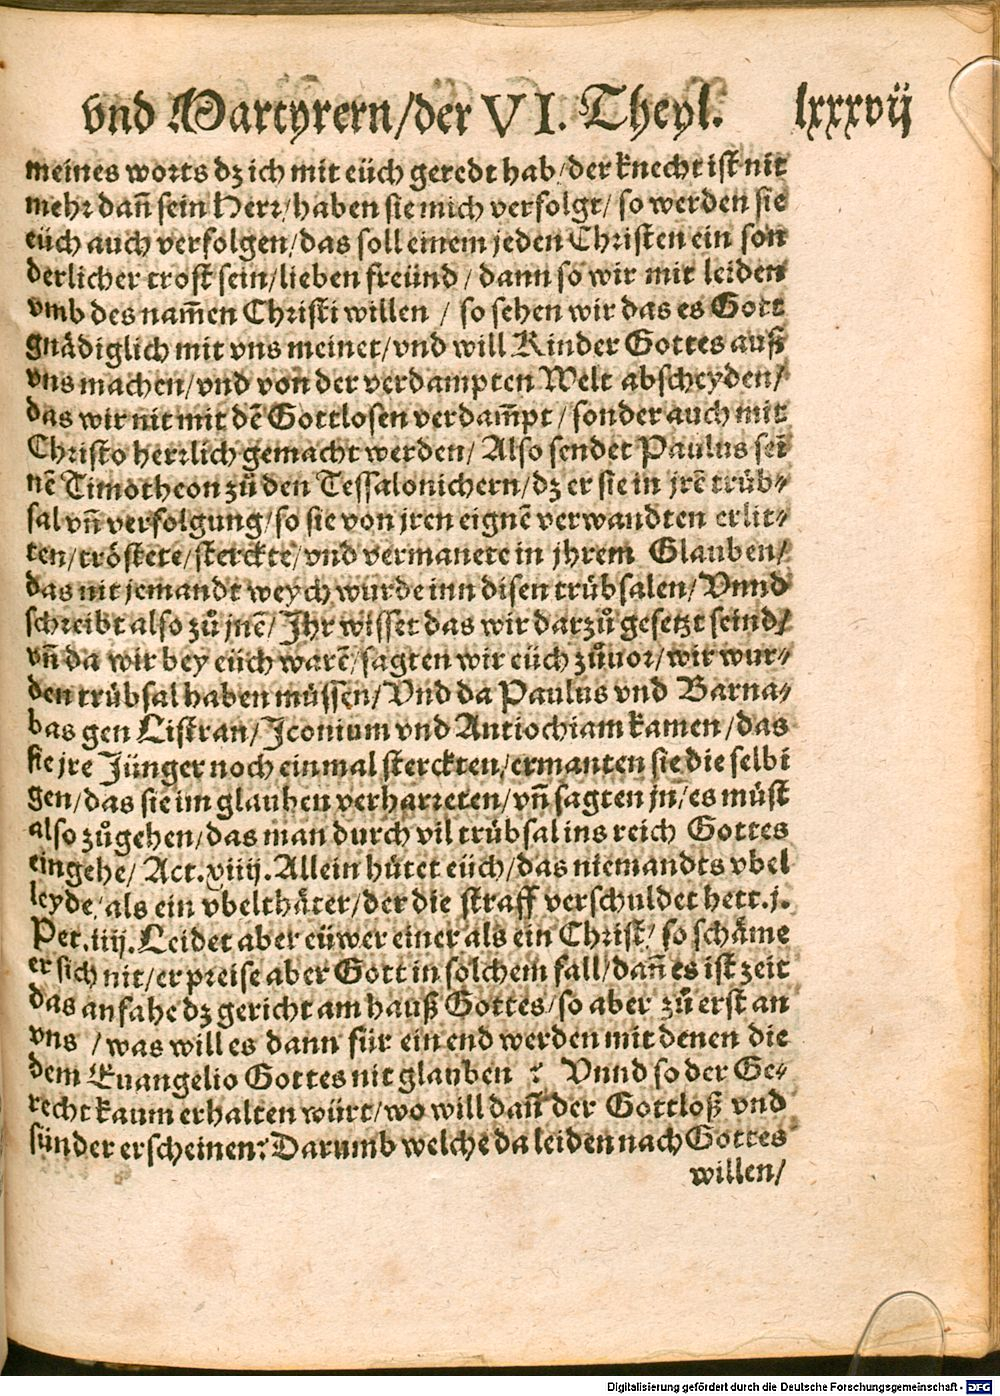 vnd Martyrern/der VI. Theyl. lxxxvij
meines worts dz ich mit eüch geredt hab/der knecht ist nit
mehr dañ sein Herr/haben sie mich verfolgt/ so werden sie
eüch auch verfolgen/das soll einem jeden Christen ein son
derlicher trost sein/lieben freünd/ dann so wir mit leiden
vmb des nam̃en Christi willen / so sehen wir das es Gott
gnädiglich mit vns meinet/vnd will Kinder Gottes auß
vns machen/vnd von der verdampten Welt abscheyden/
das wir nit mit dẽ Gottlosen verdam̃pt/sonder auch mit
Christo herrlich gemacht werden/ Also sendet Paulus sei
nẽ Timotheon zů den Tessalonichern/dz er sie in jrẽ trüb-
sal vñ verfolgung/so sie von jren eignẽ verwandten erlit-
ten/tröstete/sterckte/vnd vermanete in jhrem Glauben/
das nit jemandt weych wurde inn disen trübsalen/Vnnd
schreibt also zů jnẽ/Jhr wisset das wir darzů gesetzt seind/
vñ da wir bey eüch warẽ/sagten wir eüch zůuor/wir wur-
den trübsal haben müssen/Vnd da Paulus vnd Barna-
bas gen Listran/Jconium vnd Antiochiam kamen/das
sie jre Jünger noch einmal sterckten/ermanten sie die selbi
gen/das sie im glauben verharreten/vñ sagten jn/es müst
also zůgehen/das man durch vil trübsal ins reich Gottes
eingehe/ Act.xiiij. Allein hütet eüch/das niemandts vbel
leyde/als ein vbelthäter/der die straff verschuldet hett.j.
Pet.iiij. Leidet aber eüwer einer als ein Christ/ so schäme
er sich nit/er preise aber Gott in solchem fall/dañ es ist zeit
das anfahe dz gericht am hauß Gottes/so aber zů erst an
vns /was will es dann für ein end werden mit denen die
dem Euangelio Gottes nit glauben ? Vnnd so der Ge-
recht kaum erhalten würt/wo will dañ der Gottloß vnd
sünder erscheinen? Darumb welche da leiden nach Gottes
willen/
Digitalisierung gefördert durch die Deutsche Forschungsgemeinschaft - DFG